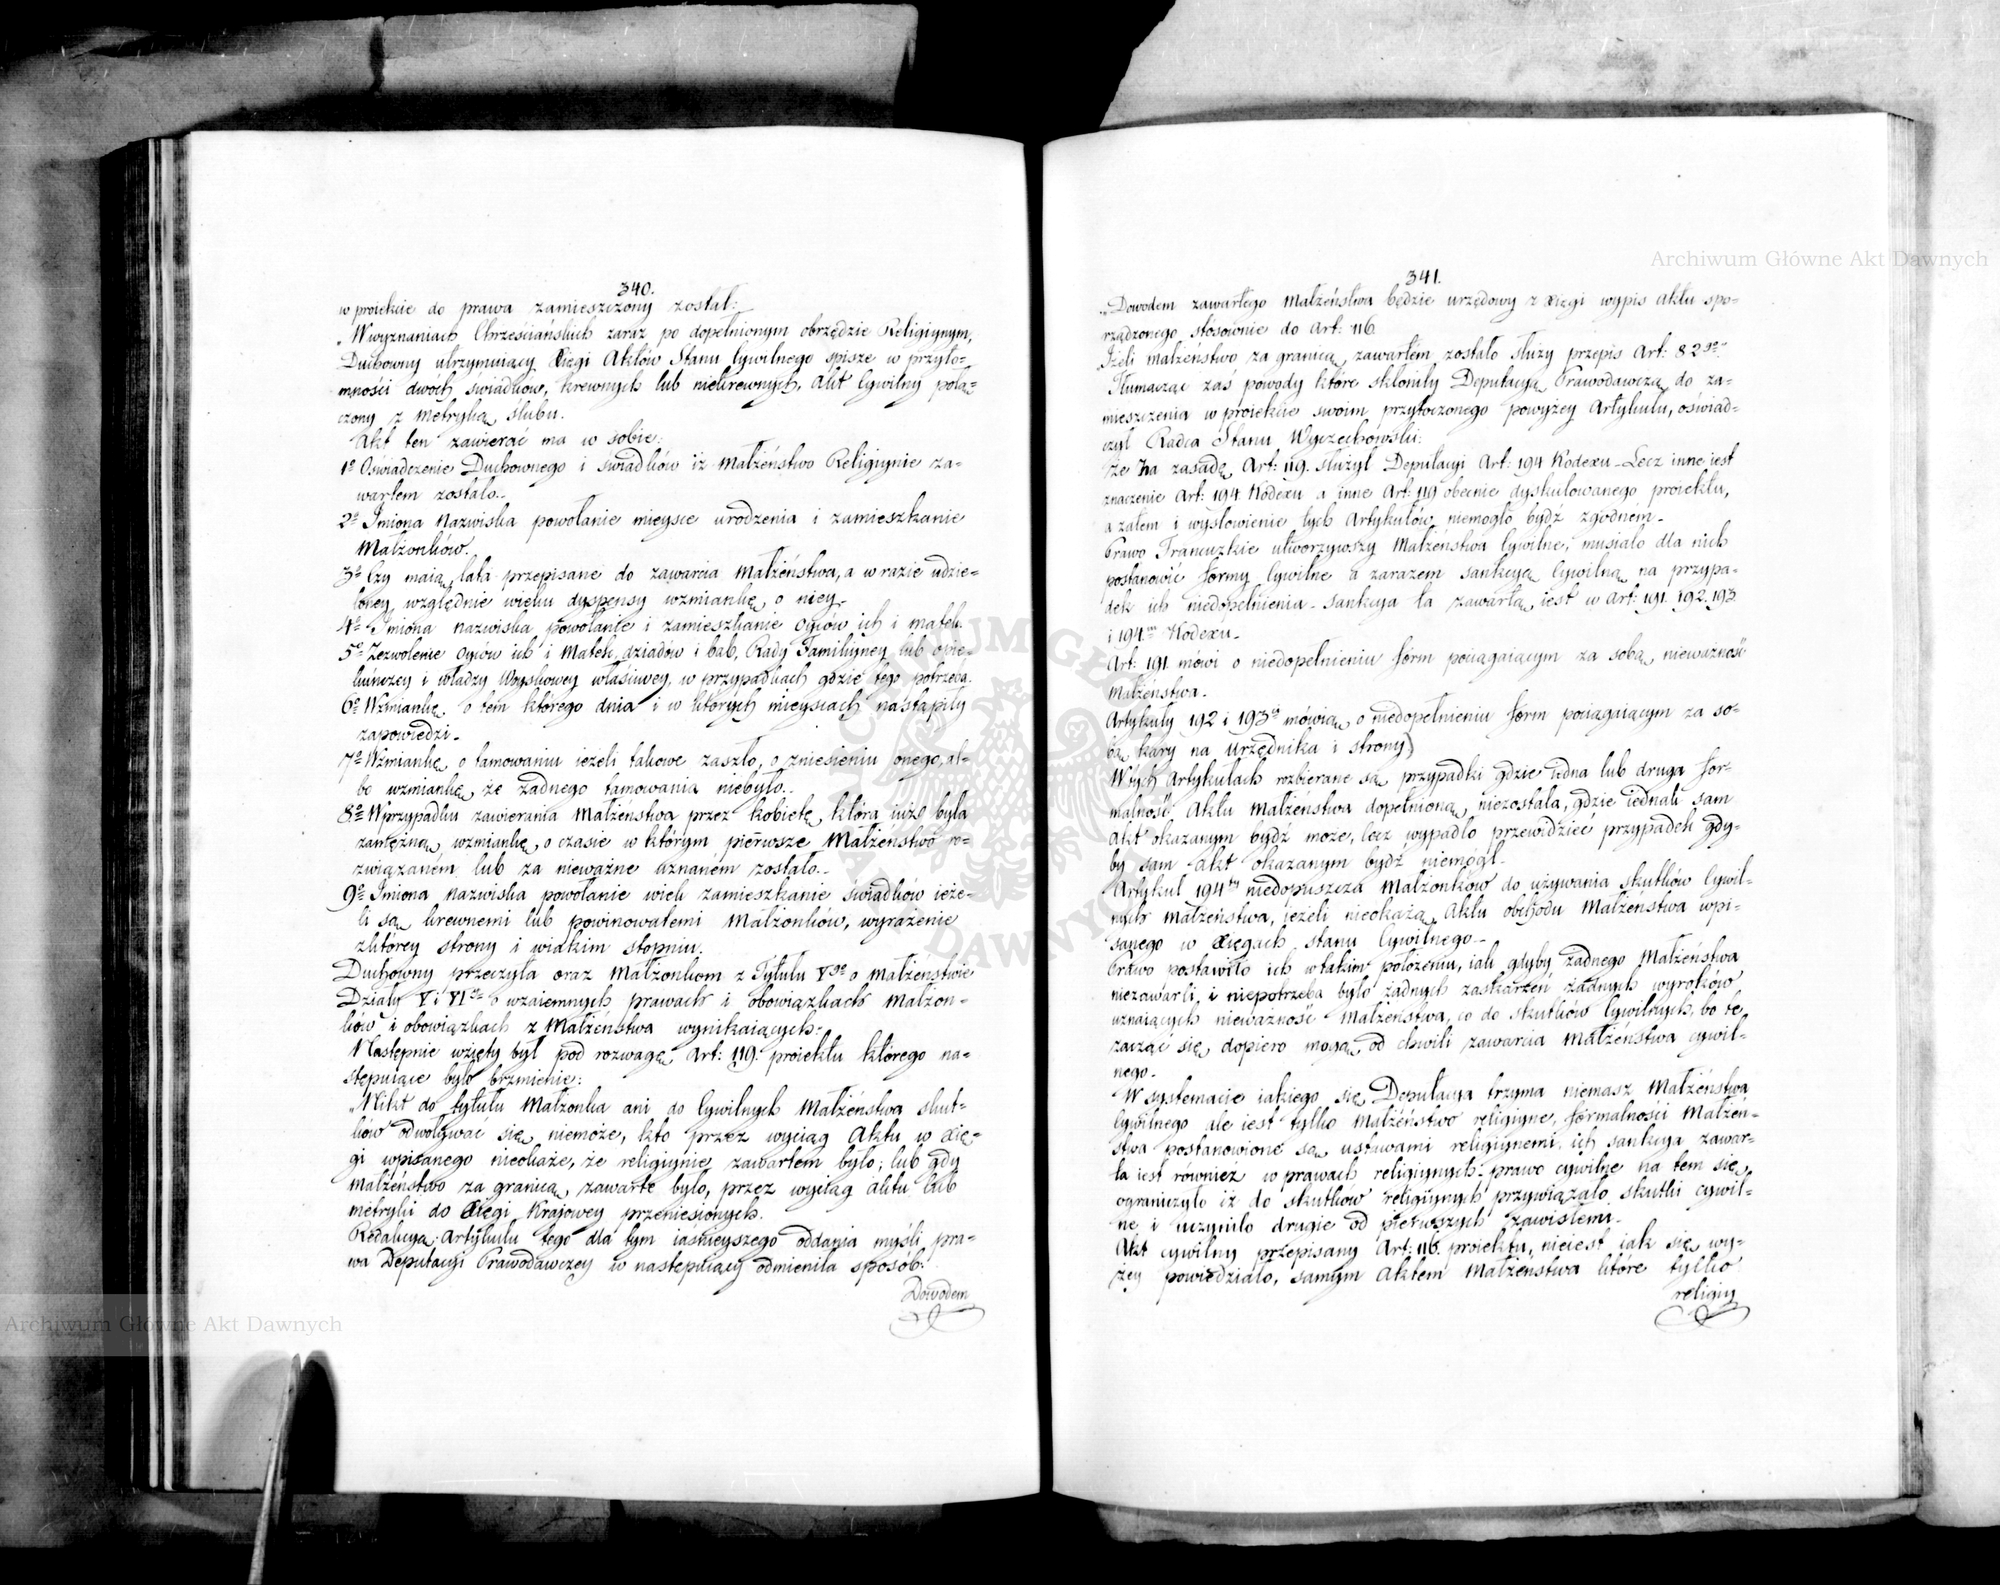 340.
w proiekcie do prawa zamieszczony został:
„W wyznaniach Chrześciańskich zaraz po dopełnionym obrzędzie Religiynym,
Duchowny utrzymuiący Xięgi Aktów Stanu Cywilnego spisze w przyto-
mności dwoch świadkow, krewnych lub niekrewnych, Akt Cywilny połą-
czony z Metryką ślubu.
Akt ten zawierać ma w sobie:
1o Oświadczenie Duchownego i świadków iż Małżeństwo Religiynie za-
wartem zostało.
2o Imiona Nazwiska powołanie mieysce urodzenia i zamieszkanie
Małżonków.
3o Czy maią lata przepisane do zawarcia Małżeństwa, a w razie udzie-
loney względnie wieku dyspensy wzmiankę o niey.
4o Imiona nazwiska powołanie i zamieszkanie Oyców ich i matek.
5o Zezwolenie Oyców ich i Matek, dziadów i bab, Rady Familiyney lub opie-
kuńczey i władzy Woyskowey właściwey, w przypadkach gdzie tego potrzeba.
6o Wzmiankę o tem którego dnia i w których mieyscach nastąpiły
zapowiedzi.
7o Wzmiankę o tamowaniu ieżeli takowe zaszło, o zniesieniu onego, al-
bo wzmiankę, że żadnego tamowania niebyło.
8o W przypadku zawierania Małżeństwa przez kobietę, która iuż była
zamężną, wzmiankę o czasie w którym pierwsze Małżeństwo ro-
związanem lub za nieważne uznanem zostało.
9o Imiona nazwiska powołanie wiek zamieszkanie świadków ieże-
li są krewnemi lub powinowatemi Małżonków, wyrażenie
zktórey strony i w iakim stopniu.
Duchowny przeczyta oraz Małżonkom z Tytułu Vgo o Małżeństwie
Działy V i VIty o wzaiemnych prawach i obowiązkach Małżon-
ków i obowiązkach z Małżeństwa wynikaiących.
Następnie wzięty był pod rozwagę Art: 119. proiektu którego na-
stępuiące było brzmienie:
„Nikt do tytułu Małżonka ani do Cywilnych Małżeństwa skut-
ków odwoływać się niemoże, kto przez wyciąg Aktu w Xię-
gi wpisanego nieokaże, że religiynie zawartem było; lub gdy
małżeństwo za granicą zawarte było, przez wyciąg aktu lub
metryki do Xięgi Krajowey przeniesionych.
Redakcyą Artykułu tego dla tym iaśnieyszego oddania myśli pra-
wa Deputacyi Prawodawczey w następuiący odmieniła sposób:
Dowodem
341.
„Dowodem zawartego Małżeństwa będzie urzędowy z Xięgi wypis Aktu spo-
rządzonego stosownie do Art: 116.
Jżeli małżeństwo za granicą zawartem zostało służy przepis Art: 82go"
Tłumacząc zaś powody które skłoniły Deputacyą Prawodawczą do za-
mieszczenia w proiekcie swoim przytoczonego powyżey Artykułu, oświad-
czył Radca Stanu Wyczechowski:
Że Za zasadę Art: 119. służył Deputacyi Art: 194 Kodexu - Lecz inne iest
znaczenie Art: 194 Kodexu a inne Art: 119 obecnie dyskutowanego proiektu,
a zatem i wysłowienie tych Artykułów niemogło bydź zgodnem.
Prawo Francuzkie utworzywszy Małżeństwa Cywilne, musiało dla nich
postanowić formy Cywilne a zarazem sankcyą Cywilną na przypa-
dek ich niedopełnienia - sankcya ta zawartą iest w Art: 191. 192. 193
i 194m Kodexu.
Art: 191. mówi o niedopełnieniu form pociągaiącym za sobą nieważność
Małżeństwa.
Artykuły 192 i 193o mówią o niedopełnieniu form pociągaiącym za so-
bą kary na Urzędnika i strony)
W tych Artykułach rozbierane są przypadki gdzie iedna lub druga for-
malność Aktu Małżeństwa dopełnioną niezostała, gdzie iednak sam
Akt okazanym bydź może, lecz wypadło przewidzieć przypadek gdy-
by sam Akt okazanym bydź niemógł.
Artykuł 194ty niedopuszcza Małżonków do używania skutków Cywil-
nych Małżeństwa, ieżeli nieokażą Aktu obchodu Małżeństwa wpi-
sanego w Xięgach stanu Cywilnego.
Prawo postawiło ich w takim położeniu, iak gdyby żadnego Małżeństwa
niezawarli, i niepotrzeba było żadnych zaskarżeń żadnych wyroków
uznaiących nieważność Małżeństwa, co do skutków Cywilnych, bo te
zacząć się dopiero mogą od chwili zawarcia Małżeństwa cywil-
nego.
W systemacie iakiego się Deputacya trzyma niemasz Małżeństwa
Cywilnego ale iest tylko Małżeństwo religiyne, formalności Małżeń-
stwa postanowione są ustawami religiynemi, ich sankcya zawar-
ta iest również w prawach religiynych - prawo cywilne na tem się
ograniczyło iż do skutków religiynych przywiązało skutki cywil-
ne i uczyniło drugie od pierwszych zawisłemi.
Akt cywilny przepisany Art: 116. proiektu, nieiest iak się wy-
żey powiedziało, samym Aktem Małżeństwa które tylko
religiy
Archiwum Główne Akt Dawnych
Archiwum Główne Akt Dawnych